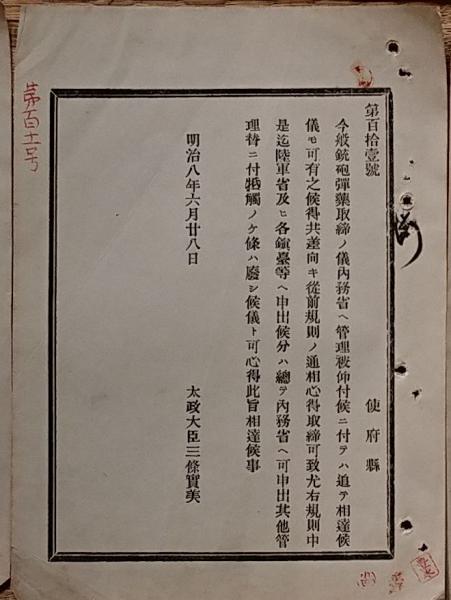 第百十一号
第百拾壹號
使府縣
今般銃砲彈藥取締ノ儀內務省ヘ管理被仰付候ニ付テハ追テ相達候
儀モ可有之候得共差向キ從前規則ノ通相心得取締可致尤右規則中
是迄陸軍省及ヒ各鎭臺等ヘ申出候分ハ總テ內務省ヘ可申出其他管
理替ニ付牴觸ノケ條ハ廢シ候儀ト可心得此旨相達候事
明治八年六月廿八日
太政大臣三條實美